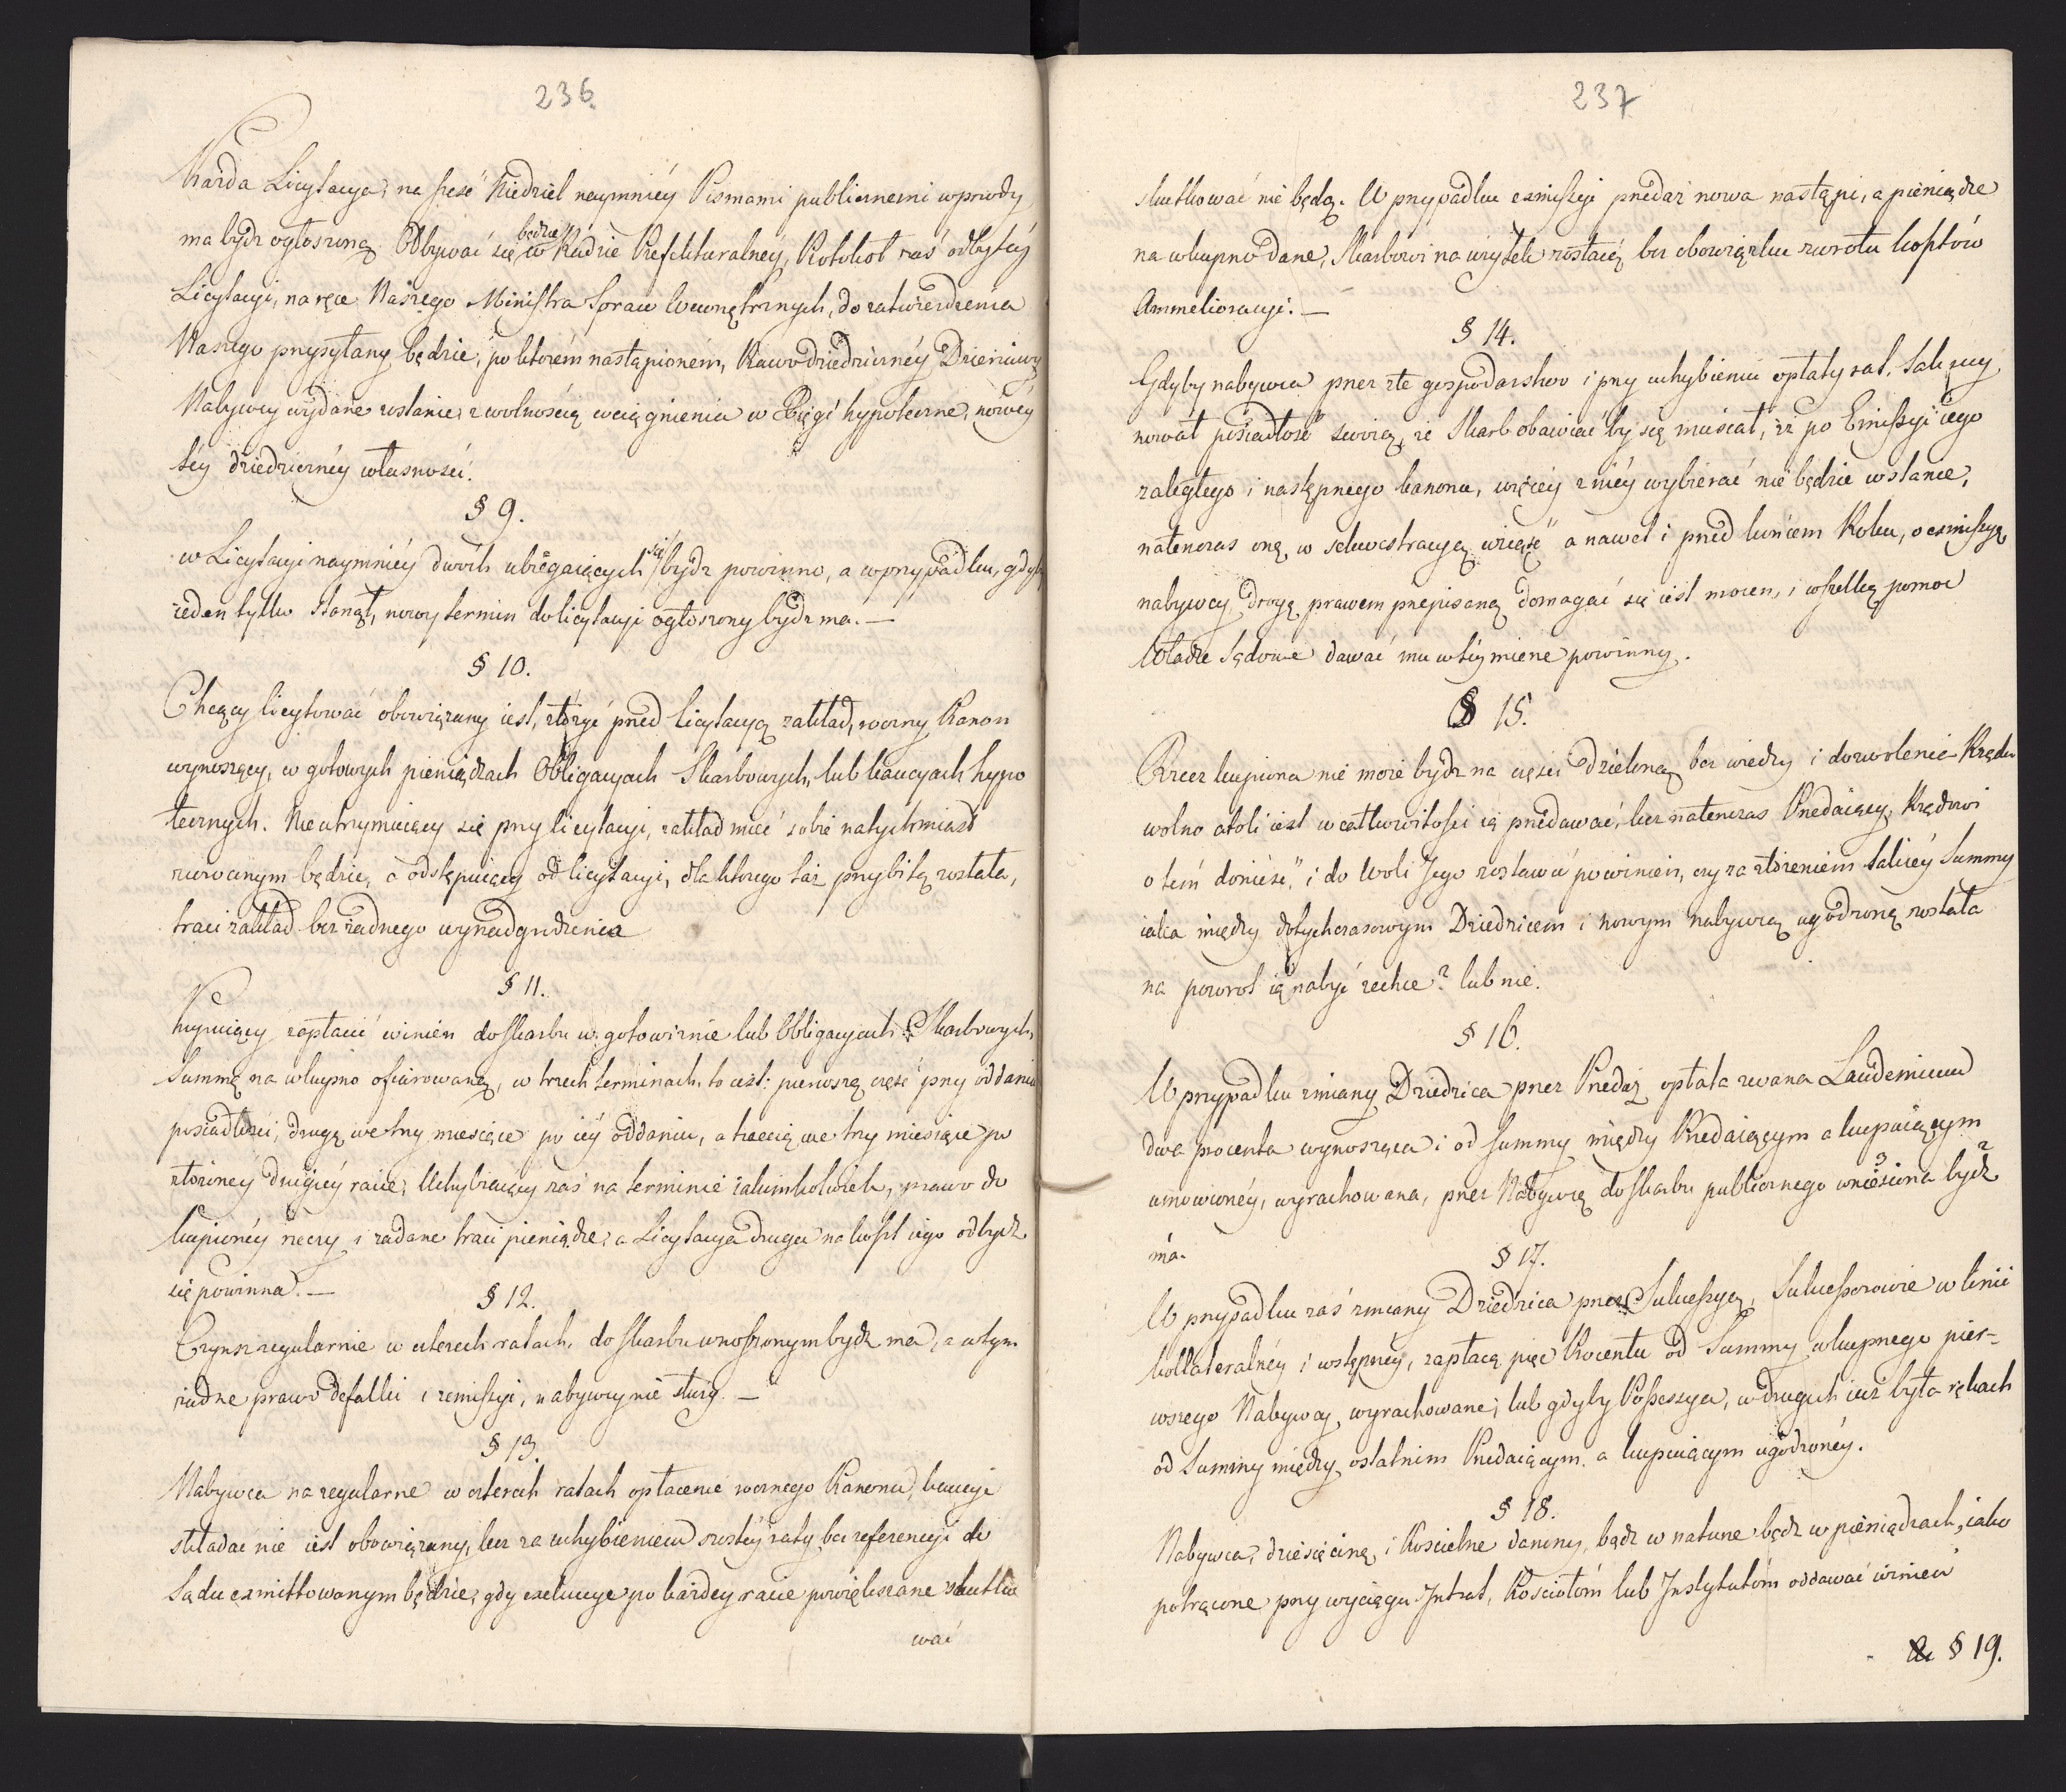 236.
Każda Licytacya, na sześć Niedziel naymniéy Pismami publicznemi wprzody
ma bydz ogłoszoną. Odbywać się będzie w Radzie Prefekturalnéy, Protokoł zaś odbytéy
Licytacyi, na ręce Naszego Ministra Spraw Wewnętrznych, do zatwierdzenia
Naszego przysyłany będzie, po którém nastąpioném, Prawo dziedzicznéy Dzierżawy
Nabywcy wydane zostanie, z wolnością wciągnienia w Xięgi hypoteczne, nowéy
téy dziedzicznéy własności.
§ 9.
w Licytacyi naymniéy dwóch ubiegaiących się bydz powinno, a w przypadku, gdyby
ieden tylko stanął, nowy termin do licytacyi ogłoszony bydz ma. —
§ 10.
Chcący licytować obowiązany iest, złożyć przed licytacyą zakład, roczny Kanon
wynoszący, w gotowych pieniądzach Obligacyach Skarbowych, lub kaucyach hypo
tecznych. Nieutrzymuiący się przy licytacyi, zakład mieć sobie natychmiast
zwrocanym będzie, a odstępuiący od licytacyi, dla którego taż przybitą została,
traci zakład bez żadnego wynadgrodzenia
§ 11.
Kupuiący zapłacić winien do Skarbu w gotowiźnie lub Obligacyach Skarbowych,
Summę na wkupno ofiarowaną, w trzech terminach, to iest: pierwszą część przy oddaniu
posiadłości, drugą we trzy miesiące po iéy oddaniu, a trzecią we trzy miesiące po
złożonéy drugiéy racie; Uchybiaiący zaś na terminie iakimkolwiek, prawo do
kupionéy rzeczy i zadane traci pieniądze, a Licytacya druga na koszt iego odbydz
się powinna. —
§ 12.
Czynsz regularnie w czterech ratach, do Skarbu wnoszonym bydz ma, a w tym
żadne prawo defalki i remissyi, nabywcy nie służy. —
§ 13.
Nabywca na regularne w czterech ratach opłacenie rocznego Kanonu, kaucyi
składać nie iest obowiązany, lecz za uchybieniem szostéy raty bez referencyi do
Sądu exmittowanym będzie, gdy exekucye po każdey racie powiększane skutko
wać
237
skutkować nie będą. W przypadku exmissyi przedaż nowa nastąpi, a pieniądze
na wkupno dane, Skarbowi na użytek zostaią, bez obowiązku zwrotu kosztów
Ammelioracyi. —
§ 14.
Gdyby nabywca przez złe gospodarstwo i przy uchybieniu opłaty rat, tak ruy
nował posiadłość swoią, iż Skarb obawiać by się musiał, iż po Emissyi iego
zaległego i następnego kanonu, więcéy z niéy wybierać nie będzie w stanie,
natenczas onę, w sekwestracyą wziąść a nawet i przed końcem Roku, o exmissyą
nabywcy, drogą prawem przepisaną domagać się iest mocen, i wszelką pomoc
Władze Sądowe dawać mu w téy mierze powinny.
§ 15.
Rzecz kupiona nie może bydz na części dzieloną, bez wiedzy i dozwolenia Rządu
wolno atoli iest w całkowitości ią przedawać, lecz natenczas Przedaiący, Rządowi
o tém donieść, i do Woli Jego zostawić powinien, czy za złożeniem takiéy Summy
iaka między dotychczasowym Dziedzicem i nowym nabywcą ugodzoną została
na powrót ią nabyć zechce? lub nie.
§ 16.
W przypadku zmiany Dziedzica przez Przedaż opłata zwana Laudemium
dwa procenta wynosząca i od summy między Przedaiącym a kupuiącym
umówionéy, wyrachowana, przez Nabywcę do Skarbu publicznego wniesiona bydź
ma.
§ 17.
W przypadku zaś zmiany Dziedzica przez Sukcessyą, Sukcessorowie w linii
kollateralnéy i wstępnéy, zapłacą pięć Procentu od Summy wkupnego pier-
wszego Nabywcy wyrachowane; lub gdyby Possessya, w drugich iuż była rękach
od Summy między ostatnim Przedaiącym a kupuiącym ugodzonéy.
§ 18.
Nabywca, dziesięcinę i Koscielne daniny, bądz w naturze bądz w pieniądzach, iako
potrącone przy wyciągu Intrat, Kosciołóm lub Instytutóm oddawać winien
§ 19.